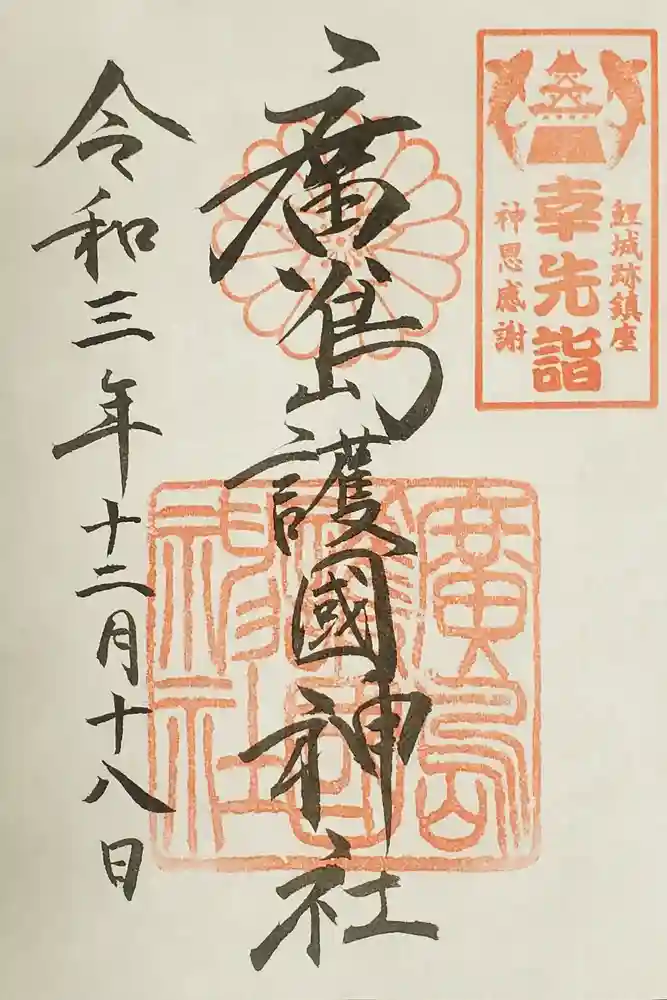 鯉城跡鎮座
幸先詣
神恩感謝
廣島護國神社
廣島
護國
神社
令和三年十二月十八日